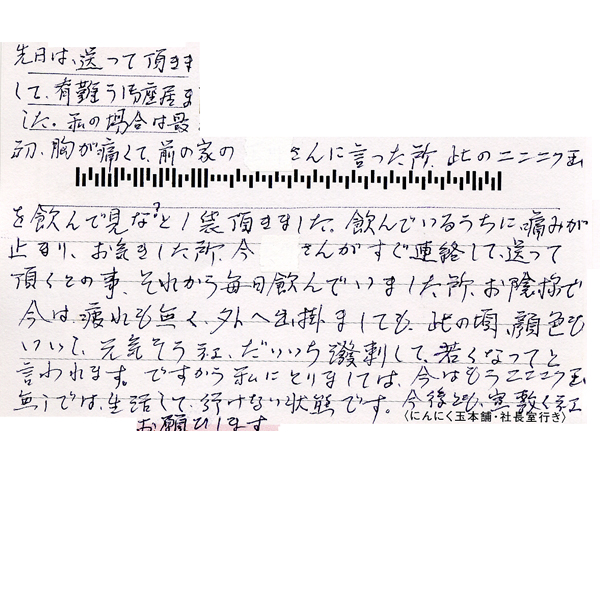 先日は、送って頂きま
して、有難う御座居ま
した。私の場合は最
初、胸が痛くて、前の家の さんに言った所、此のニンニク玉
を飲んで見な?と1袋頂きました。飲んでいるうちに、痛みが
止まり、お気きした所、今 さんがすぐ連絡して、送って
頂くとの事、それから毎日飲んでいました所、お陰様で
今は、疲れも無く、外へ出掛ましても、此の頃、顔色も
いいし、元気そうネ、だいいち溌剌して、若くなってと
言われます。ですから私にとりましては、今はもうニンニク玉
無しでは、生活して、行けない状態です。今後とも、宜敷くネ
〈にんにく玉本舗・社長室行き〉
お願ひします